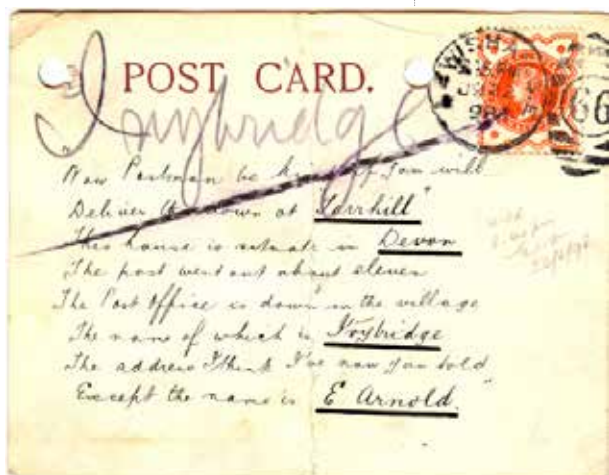 POST CARD.
Ivybridge
Now Postman be kind if you will
Deliver down at "Torrhill"
This house is situate in Devon
The post went out about eleven
The Post Office is down in the village
The name of which is Ivybridge
The address I think I've now you told
Except the name is "E Arnold."
WISH
66